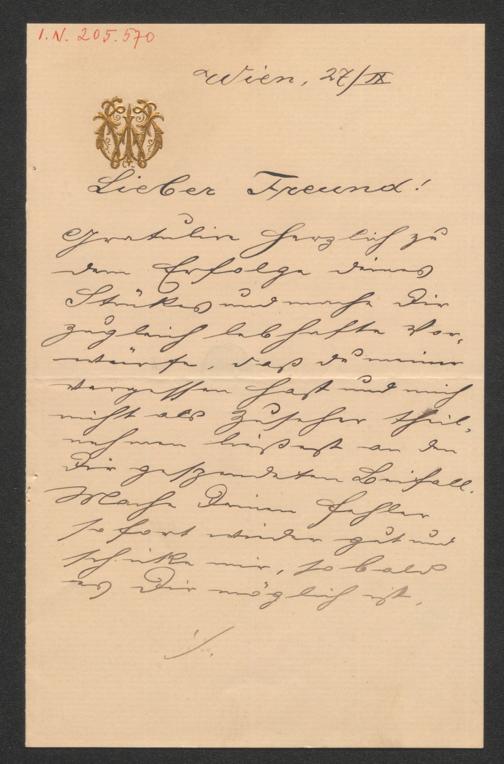 I.N. 205.570
Wien, 27/IX
Lieber Freund!
Gratulire herzlich zu
dem Erfolge deines
Stükes und mache Dir
zugleich lebhafte Vor-
würfe, daß du meiner
vergessen hast und mich
nicht als Zuseher theil-
nehmen ließest an den
Dir gespendeten Beifall.
Mache Deinen Fehler
sofort wieder gut und
schike mir, so bald
es Dir möglich ist,
./.